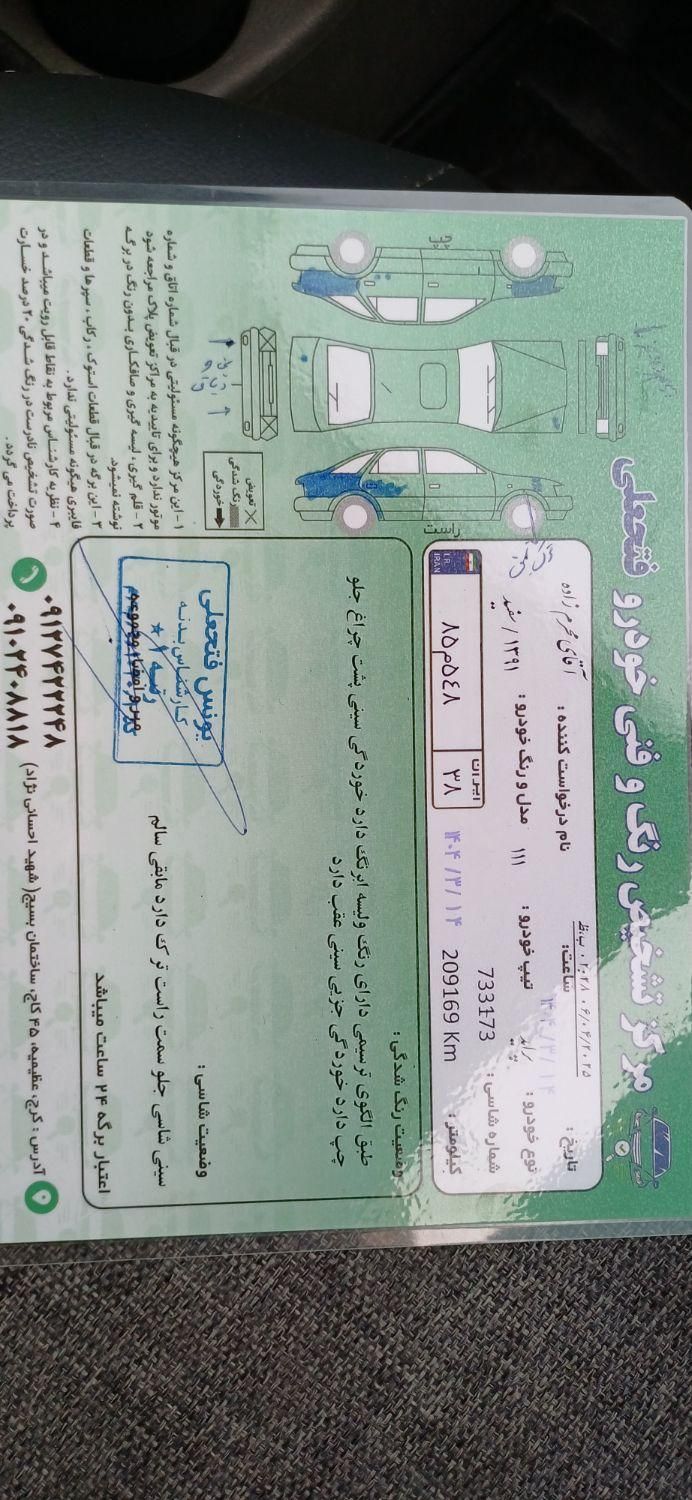 مرکز تشخیص رنگ و فنی خودرو فتحعلی
تاریخ :
۱۴۰۴/۳/۱۴
ساعت:
نام درخواست کننده : آقای محرم زاده
نوع خودرو : پراید
تیپ خودرو : ۱۱۱
مدل و رنگ خودرو : ۱۳۹۱ / سفید
شماره شاسی : 733173
کیلومتر : 209169 Km
۱۴۰۴/۳/۱۴
ایران
۳۸
۸۵م۵۴۸
I.R.
IRAN
وضعیت رنگ شدگی :
طبق الگوی ترسیمی دارای رنگ ولیسه ابرنگ دارد خوردگی سینی پشت چراغ جلو
چپ دارد خوردگی جزیی سینی عقب دارد
وضعیت شاسی :
سینی شاسی جلو سمت راست ترک دارد مابقی سالم
اعتبار برگه ۲۴ ساعت میباشد
یونس فتحعلی
کارشناس بدنه
رتبه ۱ ★
راست
تعویض
رنگ شدگی
خوردگی
۱ - این مرکز هیچگونه مسئولیتی در قبال شماره اتاق و شماره
موتور ندارد و برای تاییدیه به مراکز تعویض پلاک مراجعه شود
۲ - قلم گیری ، لیسه گیری و صافکاری بدون رنگ در برگه
نوشته نمیشود.
۳ - این برگه در قبال قطعات استوک ، رکاب ، سپرها و قطعات
فایبری هیگونه مسئولیتی ندارد.
۴ - نظریه کارشناس مربوط به نقاط قابل رویت میباشد و در
صورت تشخیص نادرست در رنگ شدگی ۲۰ درصد خسارت
پرداخت می گردد.
۰۹۱۲۷۴۲۲۲۴۸
۰۹۱۰۲۴۰۸۸۱۸
آدرس : کرج، عظیمیه، ۴۵ کاج، ساختمان بسیج( شهید احسانی نژاد)